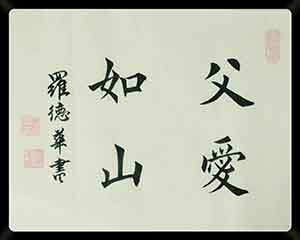 父愛
如山
羅德華書